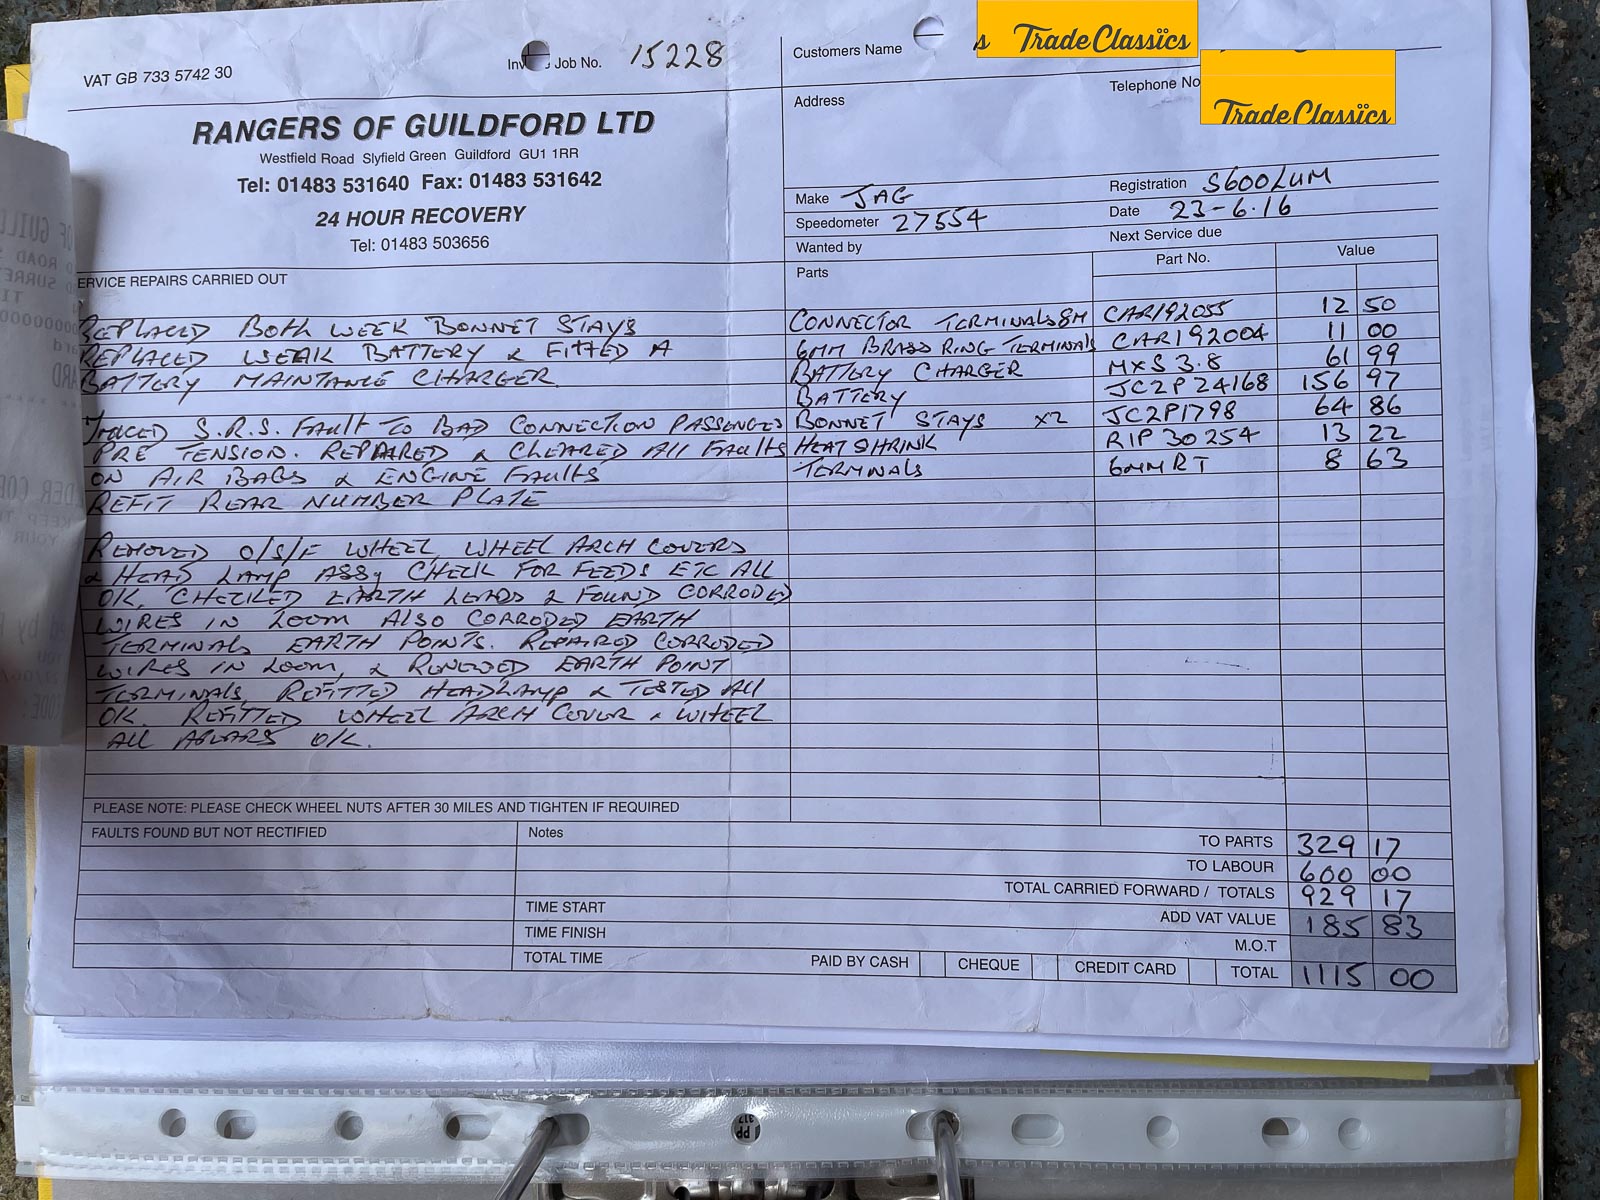 VAT GB 733 5742 30
Job No. 15228
RANGERS OF GUILDFORD LTD
Westfield Road Slyfield Green Guildford GU1 1RR
Tel: 01483 531640 Fax: 01483 531642
24 HOUR RECOVERY
Tel: 01483 503656
Customers Name
TradeClassics
Telephone No
TradeClassics
Address
Make JAG
Registration S600LUM
Speedometer 27554
Date 23-6.16
Wanted by
Next Service due
ERVICE REPAIRS CARRIED OUT
Parts Part No. Value
REPLACED BOTH WEEK BONNET STAYS
REPLACED WEAK BATTERY & FITTED A
BATTERY MAINTANCE CHARGER
TRACED S.R.S. FAULT TO BAD CONNECTION PASSENGER
PRE TENSION. REPAIRED & CLEARED ALL FAULTS
ON AIR BAGS & ENGINE FAULTS
REFIT REAR NUMBER PLATE
REMOVED O/S/F WHEEL, WHEEL ARCH COVERS
& HEAD LAMP ASSY CHECK FOR FEEDS ETC ALL
OK, CHECKED EARTH LEADS & FOUND CORRODED
WIRES IN LOOM ALSO CORRODED EARTH
TERMINALS EARTH POINTS. REPAIRED CORRODED
WIRES IN LOOM, & RENEWED EARTH POINT
TERMINALS, REFITTED HEADLAMP & TESTED ALL
OK. REFITTED WHEEL ARCH COVER & WHEEL
ALL O/K.
CONNECTOR TERMINALS 8M CAR192055 12 50
6MM BRASS RING TERMINALS CAR192004 11 00
BATTERY CHARGER MXS 3.8 61 99
BATTERY JC2P24168 156 97
BONNET STAYS x2 JC2P1798 64 86
HEAT SHRINK RIP30254 13 22
TERMINALS 6MMRT 8 63
PLEASE NOTE: PLEASE CHECK WHEEL NUTS AFTER 30 MILES AND TIGHTEN IF REQUIRED
FAULTS FOUND BUT NOT RECTIFIED
Notes
TO PARTS 329 17
TO LABOUR 600 00
TOTAL CARRIED FORWARD / TOTALS 929 17
TIME START
ADD VAT VALUE 185 83
TIME FINISH
M.O.T
TOTAL TIME
PAID BY CASH CHEQUE CREDIT CARD TOTAL 1115 00